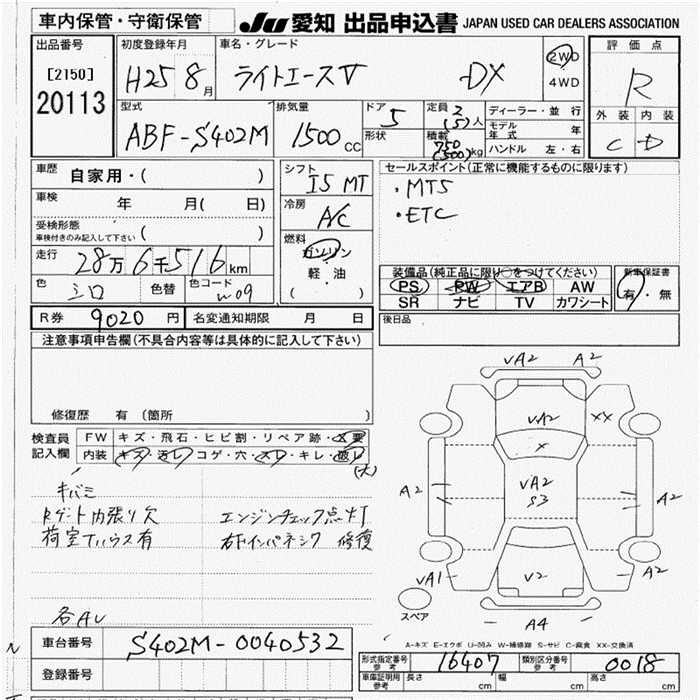 車内保管・守衛保管
JU 愛知 出品申込書 JAPAN USED CAR DEALERS ASSOCIATION
出品番号
[2150]
20113
初度登録年月
H25 8月
車名・グレード
ライトエースV DX
2WD
4WD
評価点
R
外装 内装
C D
型式
ABF-S402M
排気量
1500 cc
ドア
5
形状
定員 2 (5)人
積載 750 (500)kg
ディーラー・並行
モデル年式 年
ハンドル 左・右
車歴
自家用・( )
車検
年 月( 日)
受検形態
車検付きのみ記入して下さい ( )
走行
28万6千516km
色 シロ 色替 色コード W09
シフト
I5 MT
冷房
A/C
燃料
ガソリン
軽・油
( )
セールスポイント(正常に機能するものに限ります)
・MT5
・ETC
装備品(純正品に限り○をつけてください)
PS PW エアB AW
SR ナビ TV カワシート
新車保証書
有・無
R券 9020円 名変通知期限 月 日
後日品
注意事項申告欄(不具合内容等は具体的に記入して下さい)
修復歴 有(箇所 )
検査員記入欄
FW キズ・飛石・ヒビ割・リペア跡・X要
内装 キズ・汚レ・コゲ・穴・スレ・キレ・破レ
(大)
キバミ
Rゲート内張り欠 エンジンチェック点灯
荷室Tハウス有 右下インパネシワ 修復
各AU
VA2 A2
VA2 XX
X
A2 VA2 S3 A2
V2
VA1 A2
スペア
A4
A-キズ E-エクボ U-凹み W-補修跡 S-サビ C-腐食 XX-交換済
車台番号 S402M-0040532
登録番号
型式指定番号 参考 16407 類別区分番号 参考 0018
車庫証明用 参考 長さ cm 幅 cm 高さ cm